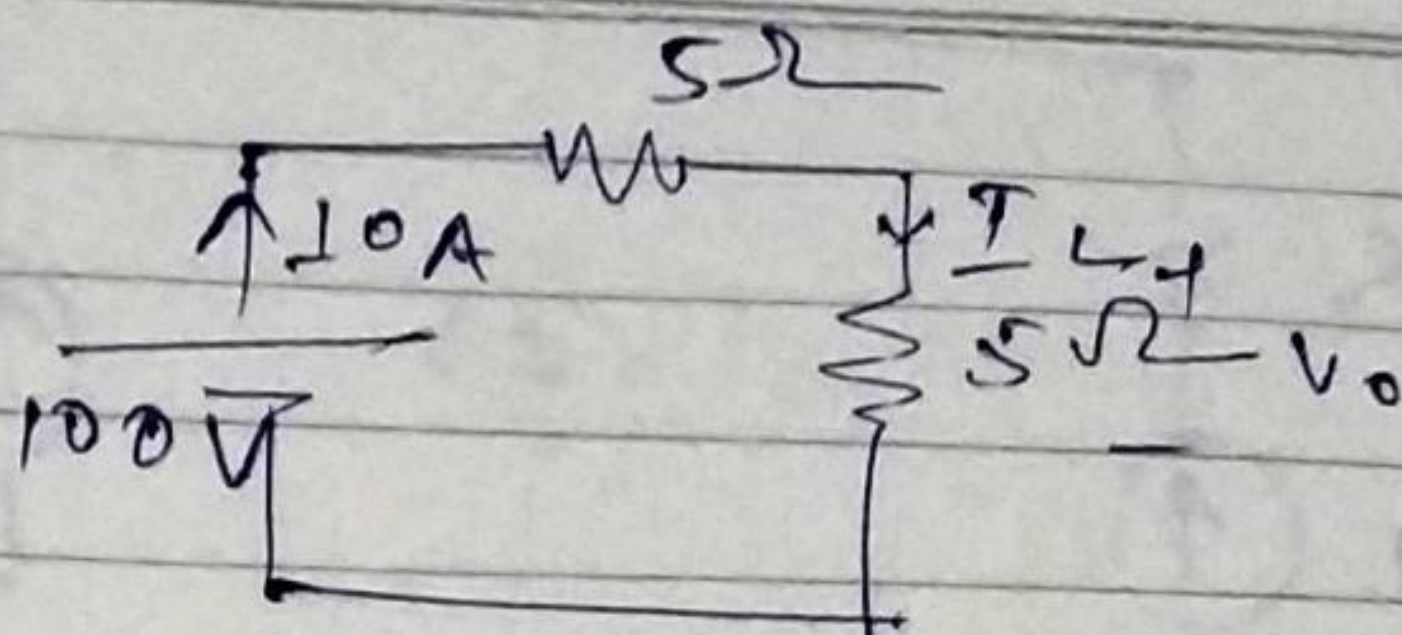 5Ω
10A
I L +
5Ω V0
100V
-